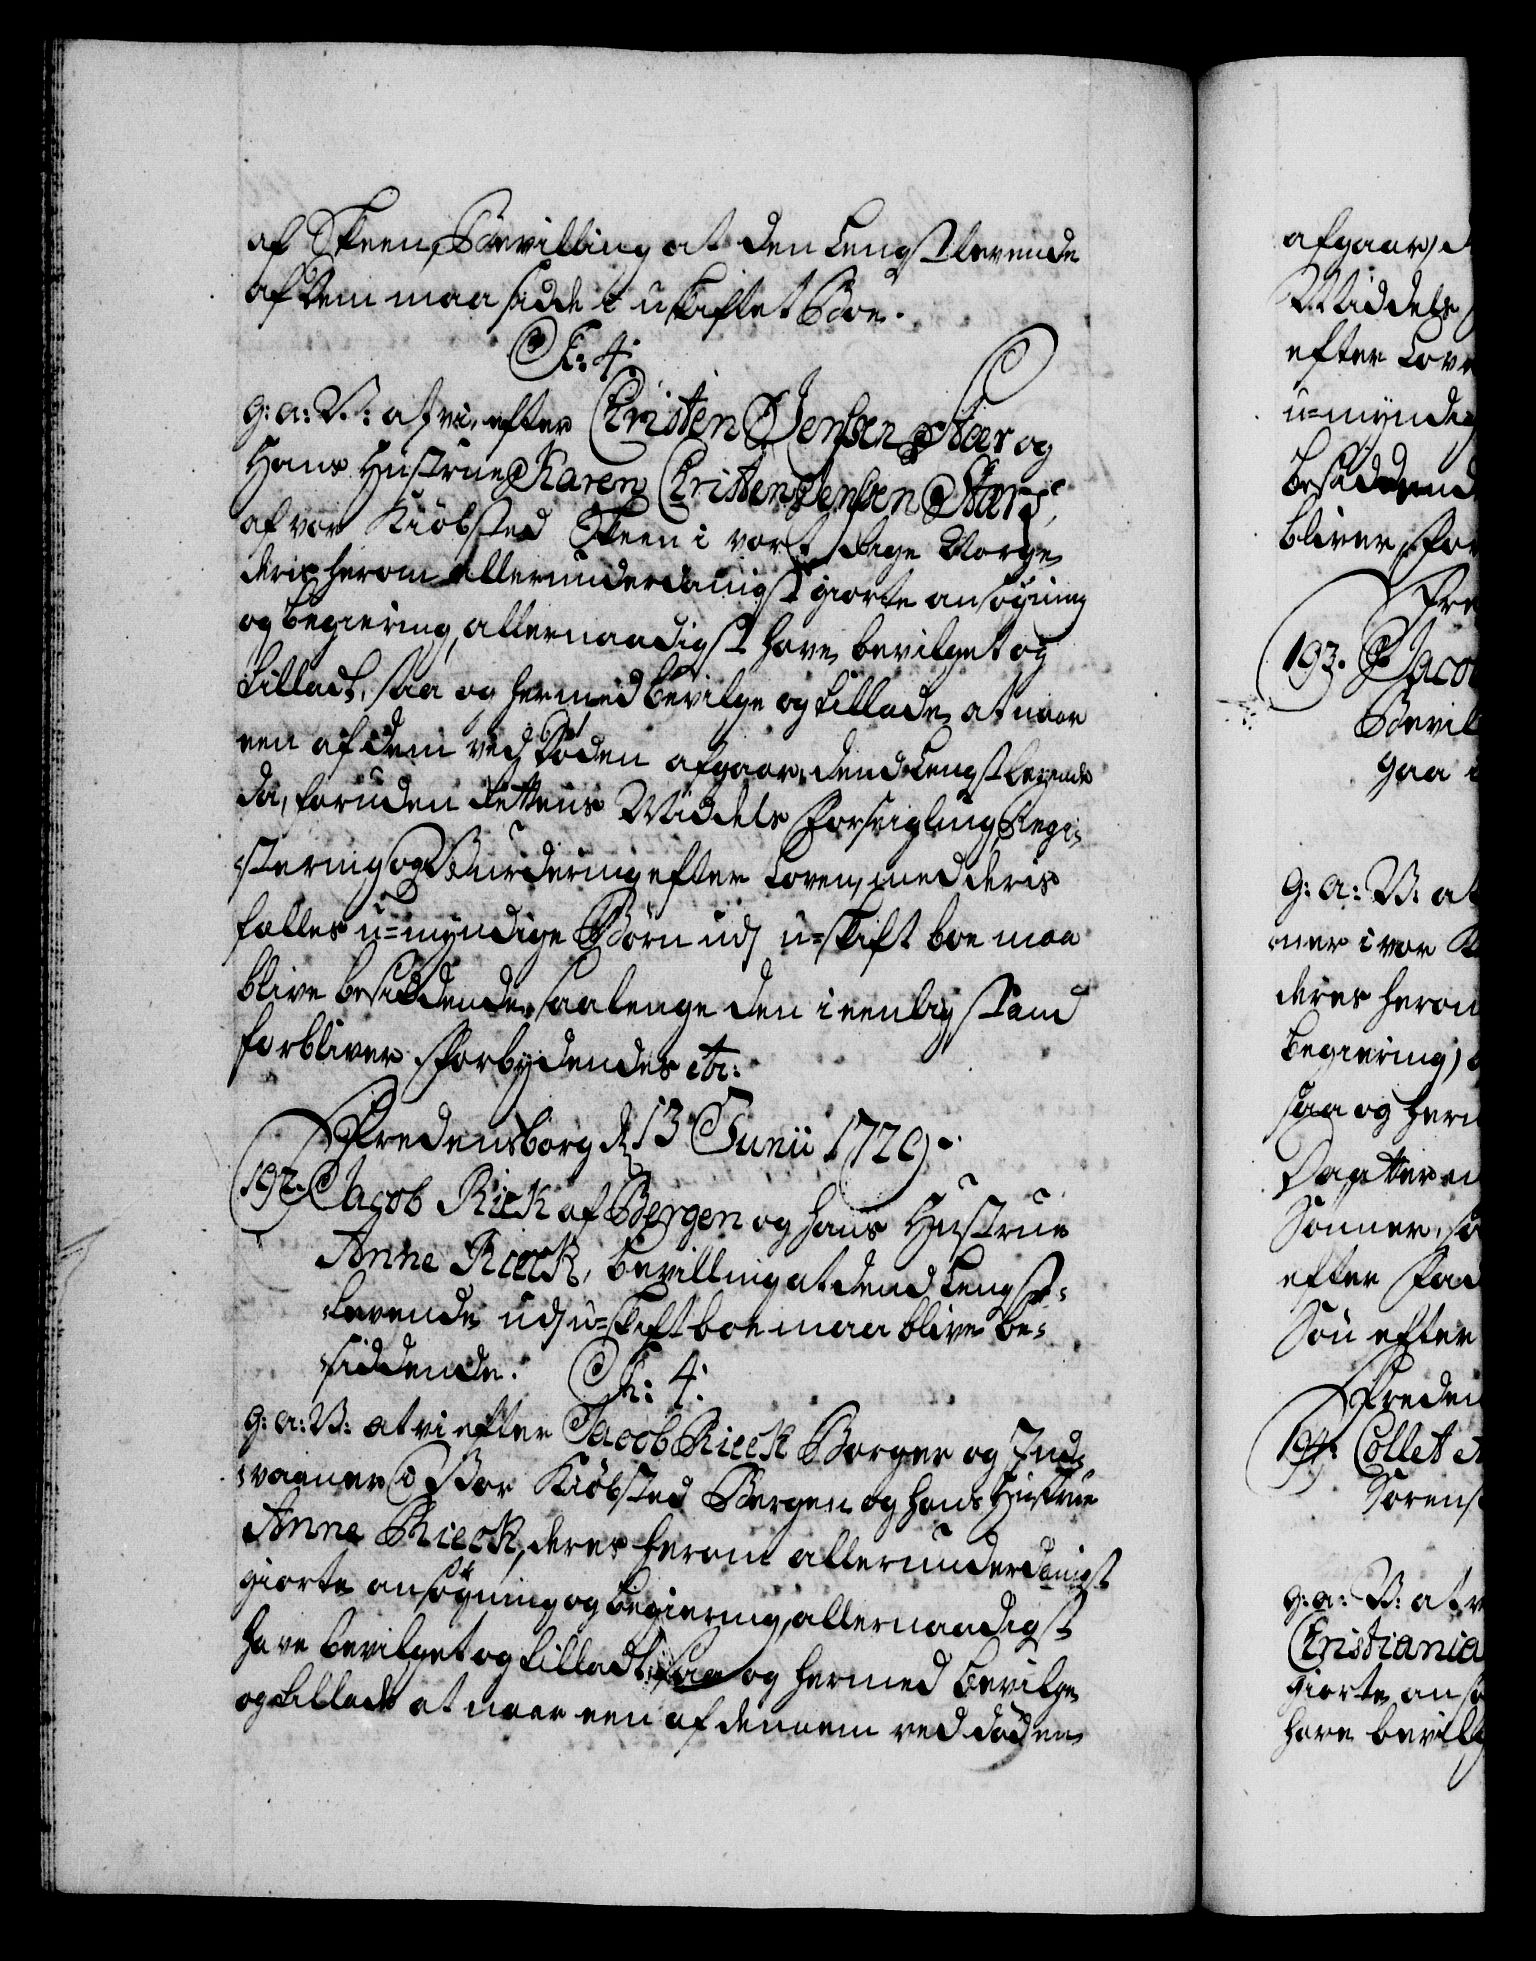 af Skeen, Bevilling at den Lengstlevende
af dem maa sidde i uskiftet Boe.
C. F: 4:
G: a: V: at vi, efter Christen Jensen Stær og
Hans Hustrue Karen Christen Jensen Stærs,
af vor Kiöbsted Skeen i vort Rige Norge,
deris herom allerunderdanigst giorte ansögning
og begiering, allernaadigst have bevilget og
tilladt, saa og hermed bevilge og tillade, at naar
een af dem ved Döden afgaar, dend Lengstlevende
da, foruden dettens Middels Forseigling, Regi-
stering og Vurdering efter Loven, med deris
fælles u=myndige Börn udj u=skift boe maa
blive besiddende, saalenge den i eenlig stand
forbliver. Forbydendes etc:
Fredensborg d 13 Junii 1729.
192. Jacob Rieck af Bergen og hans Hustrue
Anne Rieck, bevilling at dend Lengst-
levende udj u=skift boe maa blive be-
siddende. C. F: 4:
G: a: V: at vi efter Jacob Rieck Borger og Ind-
vaaner i Vor Kiöbsted Bergen og hans Hustrue
Anne Rieck, deres herom allerunderdanigst
giorte ansögning og begiering, allernaadigst
have bevilget og tilladt, saa og hermed bevilge
og tillade at naar een af dennem ved döden
afgaar, d
Middels
efter Lov
u=myndig
besiddend
bliver, For
Fre
193. Jacob
Bevil
gaa
G: a: V: at
ner i vor K
deres herom
begiering,
saa og herm
Daatter
Sönner, so
efter Fad
Sön efter
Freden
194. Collet
Sörens
G: a: V: at v
Christiania
giorte ansö
have bevilg